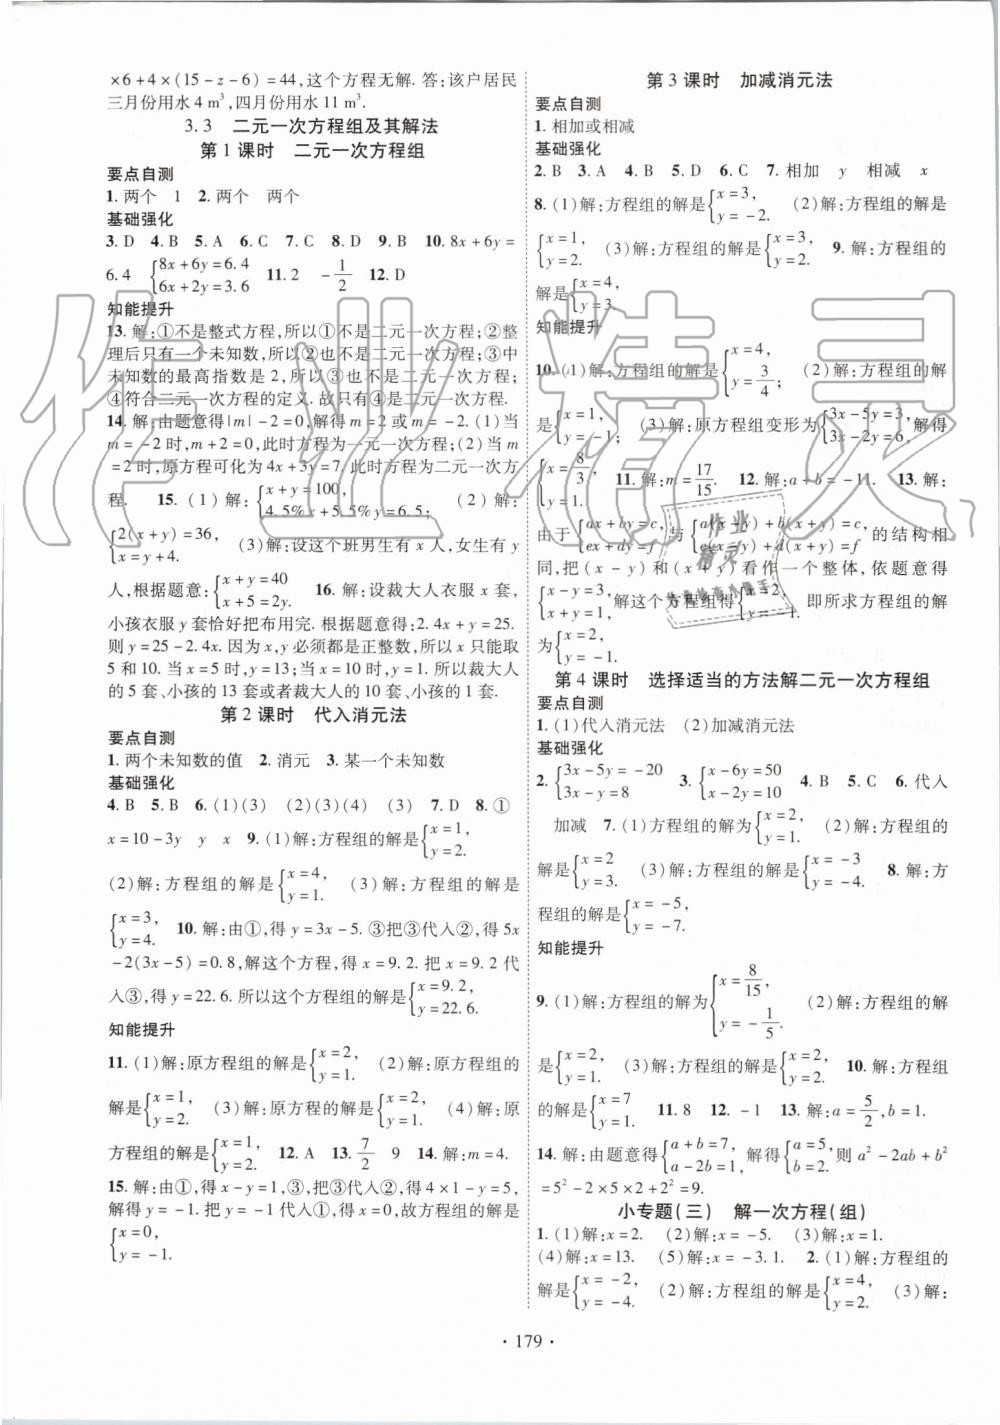 ×6+4×(15-z-6)=44,这个方程无解. 答:该户居民
三月份用水 4 m³,四月份用水 11 m³.
3.3 二元一次方程组及其解法
第 1 课时 二元一次方程组
要点自测
1. 两个 1 2. 两个 两个
基础强化
3. D 4. B 5. A 6. C 7. C 8. D 9. B 10. 8x+6y=
6.4 {8x+6y=6.4 6x+2y=3.6 11. 2 -1/2 12. D
知能提升
13. 解:①不是整式方程,所以①不是二元一次方程;②整
理后只有一个未知数,所以②也不是二元一次方程;③中
未知数的最高指数是 2,所以③也不是二元一次方程;
④符合二元一次方程的定义. 故只有④是二元一次方程.
14. 解:由题意得|m|-2=0,解得 m=2 或 m=-2. (1)当
m=-2 时,m+2=0,此时方程为一元一次方程;(2)当 m
=2 时,原方程可化为 4x+3y=7,此时方程为二元一次方
程. 15. (1)解:{x+y=100, 4.5%x+5.5%y=6.5; (2)解:
{2(x+y)=36, x=y+4; (3)解:设这个班男生有 x 人,女生有 y
人,根据题意:{x+y=40 x+5=2y. 16. 解:设裁大人衣服 x 套,
小孩衣服 y 套恰好把布用完. 根据题意得:2.4x+y=25.
则 y=25-2.4x. 因为 x,y 必须都是正整数,所以 x 只能取
5 和 10. 当 x=5 时,y=13;当 x=10 时,y=1. 所以裁大人
的 5 套、小孩的 13 套或者裁大人的 10 套、小孩的 1 套.
第 2 课时 代入消元法
要点自测
1. 两个未知数的值 2. 消元 3. 某一个未知数
基础强化
4. B 5. B 6. (1)(3) (2)(3)(4) (3) 7. D 8. ①
x=10-3y y x 9. (1)解:方程组的解是{x=1, y=2.
(2)解:方程组的解是{x=4, y=1. (3)解:方程组的解是
{x=3, y=4. 10. 解:由①,得 y=3x-5. ③把③代入②,得 5x
-2(3x-5)=0.8,解这个方程,得 x=9.2. 把 x=9.2 代
入③,得 y=22.6. 所以这个方程组的解是{x=9.2, y=22.6.
知能提升
11. (1)解:原方程组的解是{x=2, y=1. (2)解:原方程组的
解是{x=1, y=2. (3)解:原方程的解是{x=2, y=1. (4)解:原
方程组的解是{x=1, y=2. 12. A 13. 7/2 9 14. 解:m=4.
15. 解:由①,得 x-y=1,③,把③代入②,得 4×1-y=5,
解得 y=-1. 把 y=-1 代入③,得 x=0,故方程组的解是
{x=0, y=-1.
第 3 课时 加减消元法
要点自测
1. 相加或相减
基础强化
2. B 3. A 4. B 5. D 6. C 7. 相加 y 相减 x
8. (1)解:方程组的解是{x=3, y=-2. (2)解:方程组的解是
{x=1, y=2. (3)解:方程组的解是{x=3, y=2. 9. 解:方程组的
解是{x=4, y=3.
知能提升
10. (1)解:方程组的解是{x=4, y=3/4; (2)解:方程组的解
是{x=1, y=-1; (3)解:原方程组变形为{3x-5y=3, 3x-2y=6, 解得
{x=8/3, y=1. 11. 解:m=17/15. 12. 解:a+b=-1. 13. 解:
由于{ax+by=c, ex+dy=f 与{a(x-y)+b(x+y)=c, e(x-y)+d(x+y)=f 的结构相
同,把(x-y)和(x+y)看作一个整体,依题意得
{x-y=3, x+y=1, 解这个方程组得{x=2, y=-1. 即所求方程组的解
为{x=2, y=-1.
第 4 课时 选择适当的方法解二元一次方程组
要点自测
1. (1)代入消元法 (2)加减消元法
基础强化
2. {3x-5y=-20 3x-y=8 3. {x-6y=50 x-2y=10 4. B 5. C 6. 代入
加减 7. (1)方程组的解为{x=2, y=1. (2)解:方程组的
解是{x=2 y=3. (3)解:方程组的解是{x=-3 y=-4. 8. 解:方
程组的解是{x=-5, y=-7.
知能提升
9. (1)解:方程组的解为{x=8/15, y=-1/5. (2)解:方程组的解
是{x=2, y=1. (3)解:方程组的解是{x=2, y=2. 10. 解:方程组
的解是{x=7 y=1 11. 8 12. -1 13. 解:a=5/2,b=1.
14. 解:由题意得{a+b=7, a-2b=1, 解得{a=5, b=2. 则 a²-2ab+b²
=5²-2×5×2+2²=9.
小专题(三) 解一次方程(组)
1. (1)解:x=2. (2)解:x=-5. (3)解:x=1.
(4)解:x=13. (5)解:x=-3.1. 2. (1)解:方程组的
解是{x=-2, y=-4. (2)解:方程组的解是{x=4, y=2. (3)解:
· 179 ·
作业精灵
作业
精灵